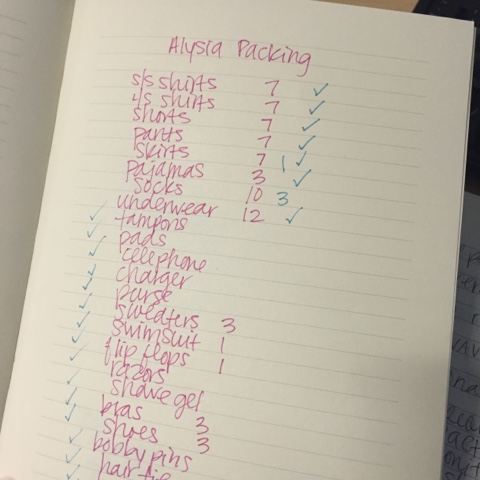 Alysia Packing
s/s shirts 7 ✓
l/s shirts 7 ✓
shorts 7 ✓
pants 7 ✓
skirts 7 1 ✓
pajamas 3 ✓
socks 10 3
underwear 12 ✓
✓ tampons
✓ pads
✓ cellphone
✓ charger
✓ purse
✓ sweaters 3
✓ swimsuit 1
✓ flip flops 1
✓ razors
✓ shave gel
✓ bras 3
✓ shoes 3
✓ bobby pins
✓ hair tie